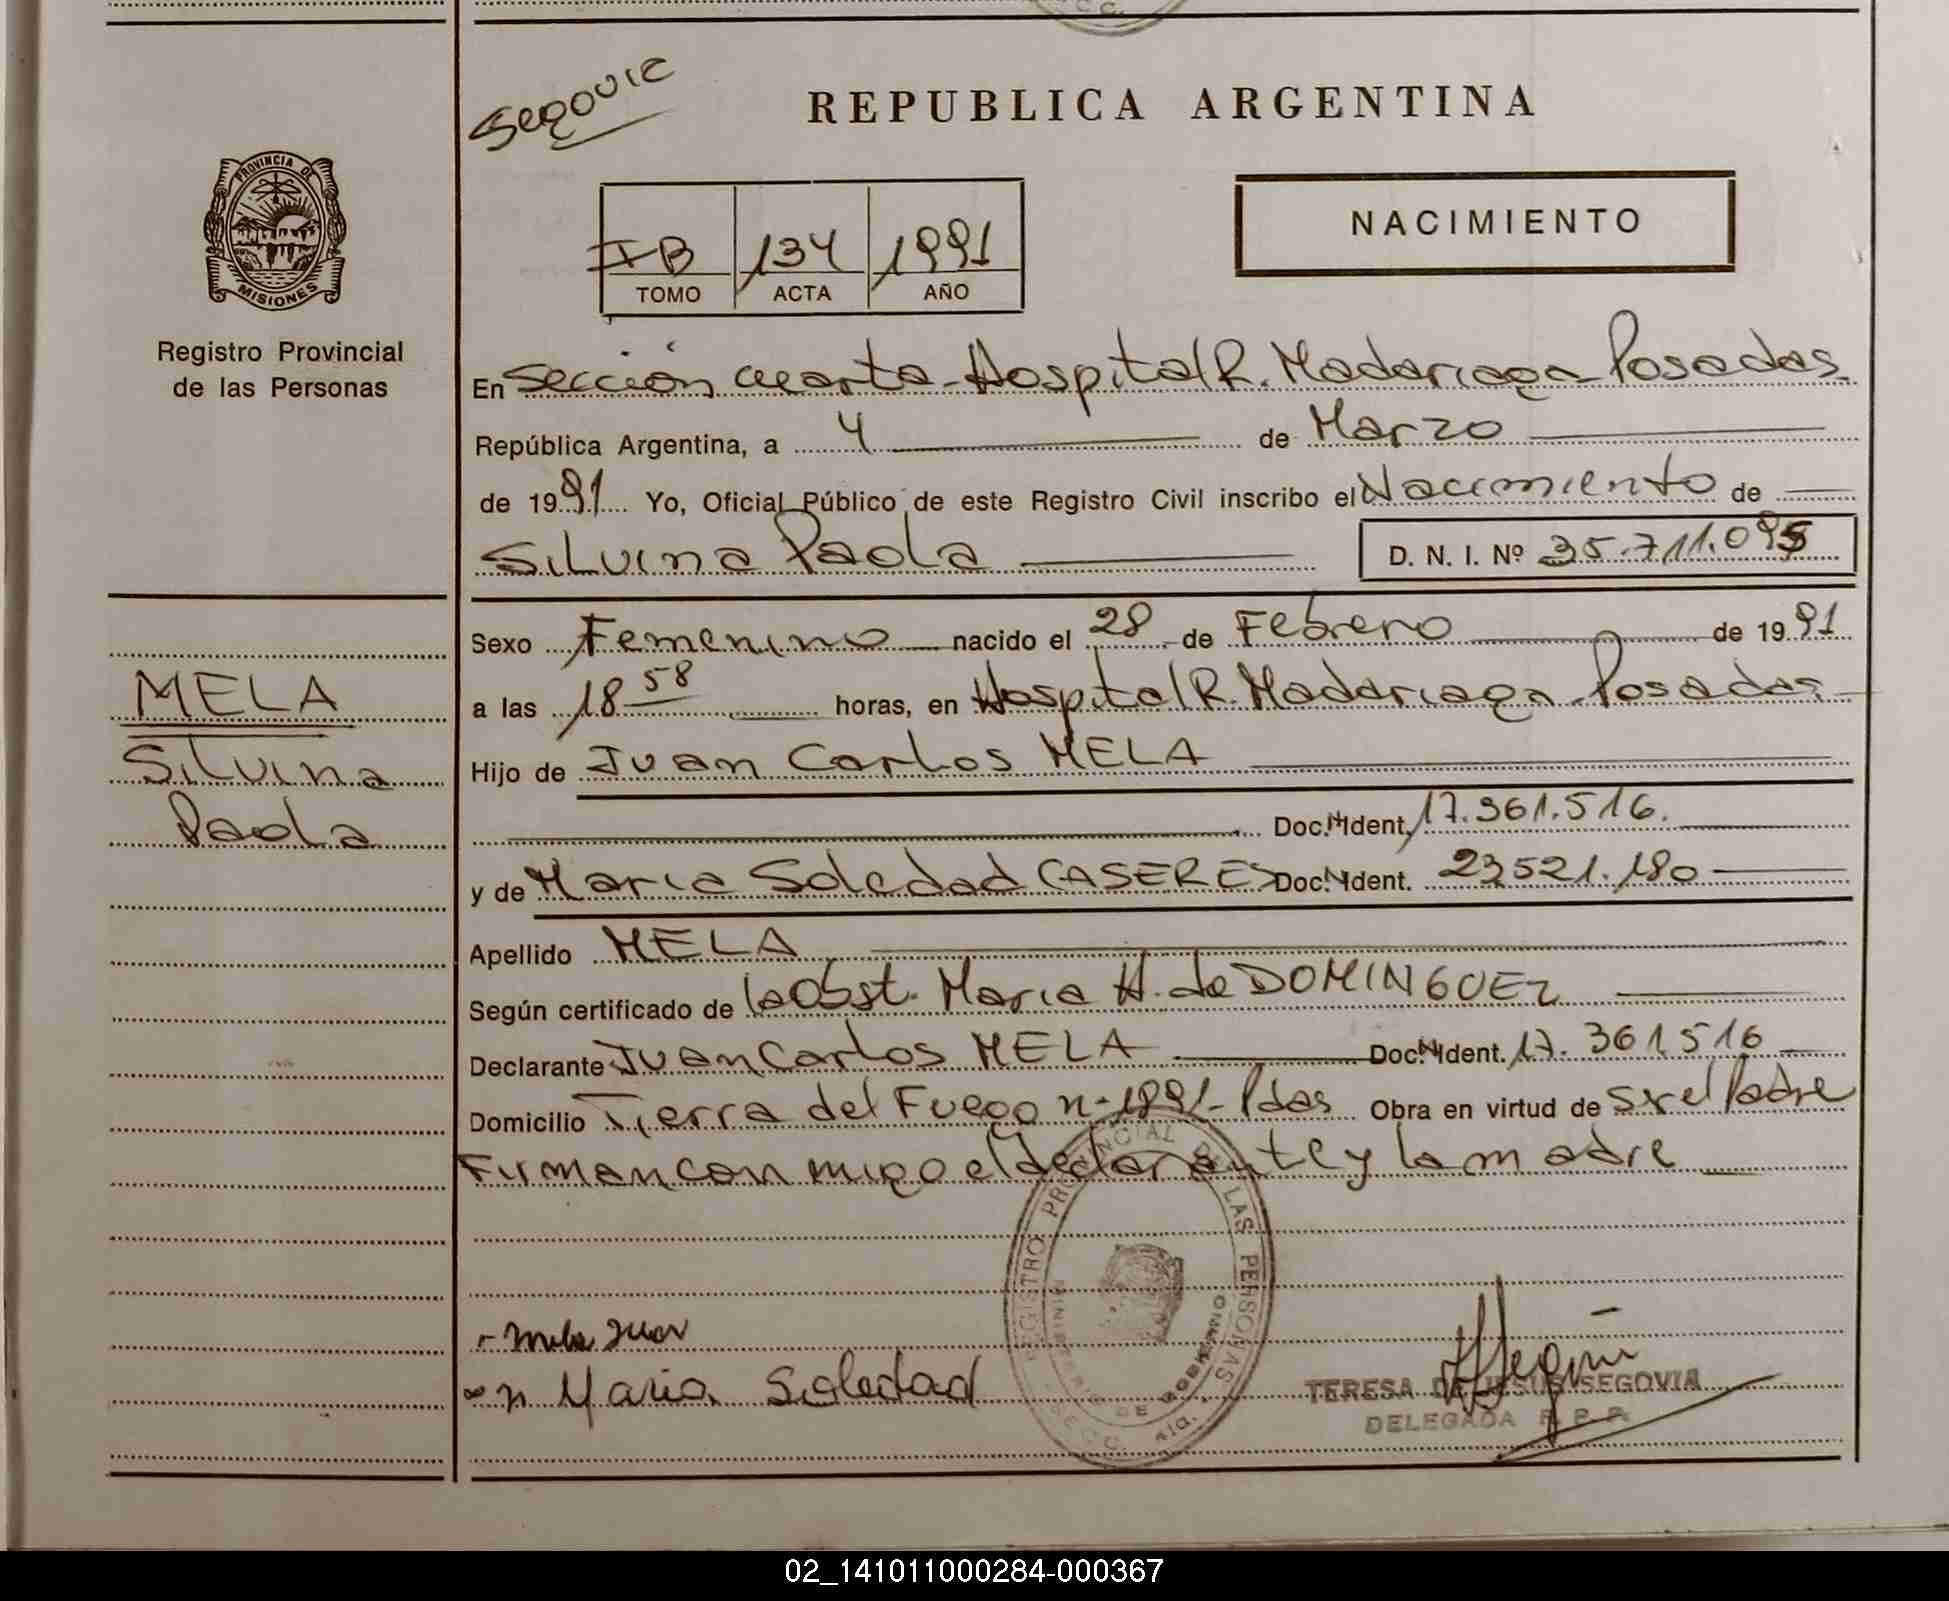 Segovia
REPUBLICA ARGENTINA
PROVINCIA DE
MISIONES
Registro Provincial
de las Personas
I B 134 1991
TOMO ACTA AÑO
NACIMIENTO
En Sección cuarta - Hospital R. Madariaga - Posadas
República Argentina, a 4 de Marzo
de 1991 Yo, Oficial Público de este Registro Civil inscribo el Nacimiento de
Silvina Paola D. N. I. Nº 35.711.095
Sexo Femenino nacido el 28 de Febrero de 1991
a las 18 58 horas, en Hospital R. Madariaga - Posadas
Hijo de Juan Carlos MELA
Doc. Ident. 17.361.516.
y de Maria Soledad CASERES Doc. Ident. 23521.180
Apellido MELA
Según certificado de la Obst. Maria H. de DOMINGUEZ
Declarante Juan Carlos MELA Doc. Ident. 17.361516
Domicilio Tierra del Fuego n- 1991- Pdas Obra en virtud de sr el Padre
Firman con migo el declarante y la madre
MELA
Silvina
Paola
REGISTRO PROVINCIAL DE LAS PERSONAS
MINISTERIO DE GOBIERNO
Mela Juan
Maria Soledad
TERESA DE JESUS SEGOVIA
DELEGADA R. P. P.
02_141011000284-000367